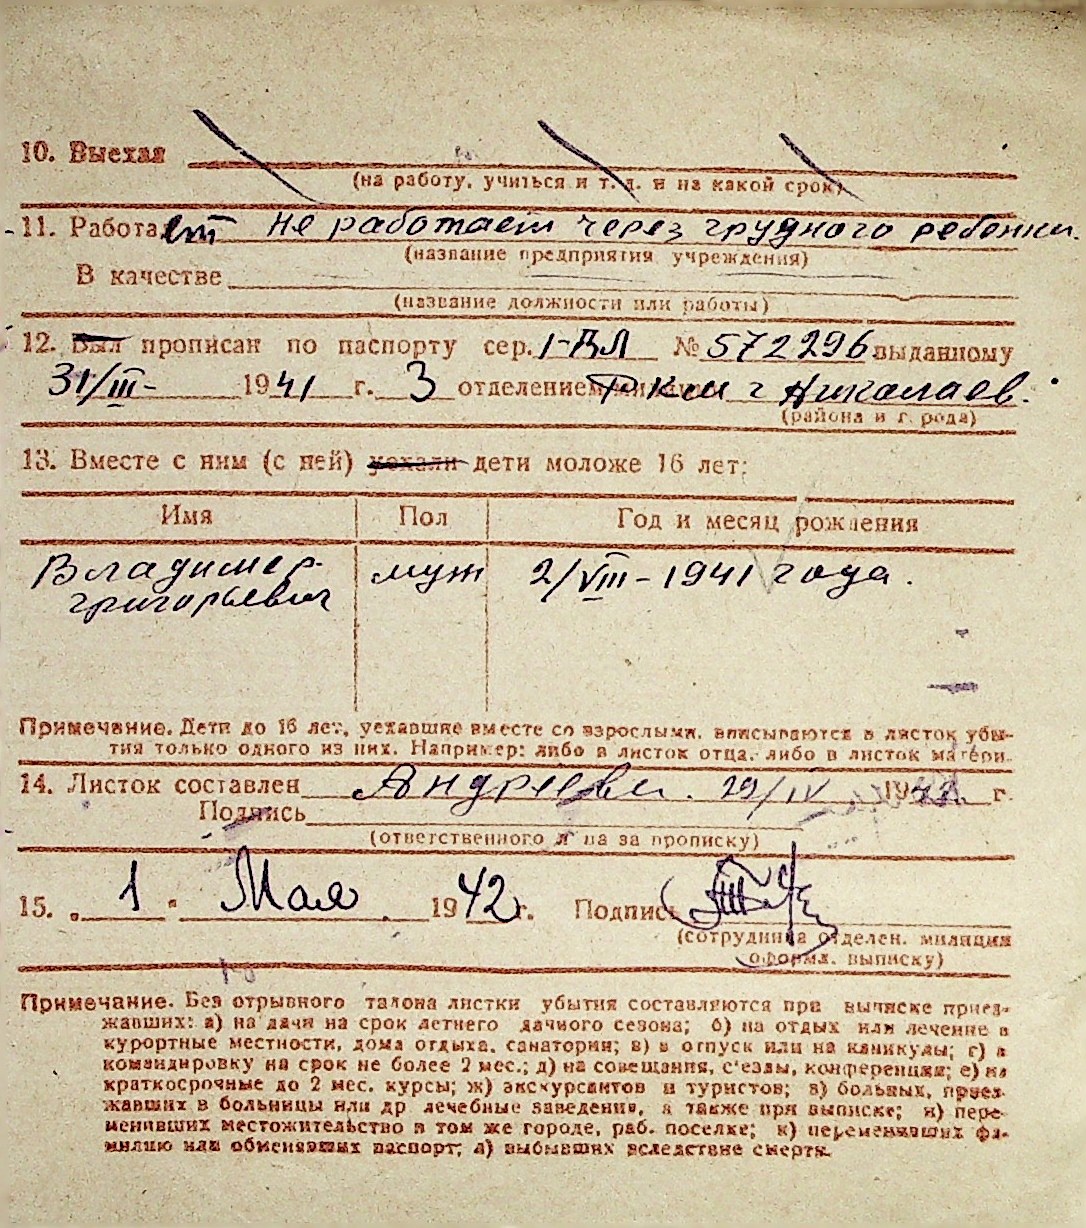 10. Выехал
(на работу, учиться и т. д. и на какой срок)
11. Работает не работает через грудного ребенки.
(название предприятия учреждения)
В качестве
(название должности или работы)
12. Был прописан по паспорту сер. I-ВЛ № 572296 выданному
31/III- 1941 г. 3 отделением РКМ г Николаев.
(района и г. рода)
13. Вместе с ним (с ней) уехали дети моложе 16 лет:
Имя Пол Год и месяц рождения
Владимер. муж 2/VIII-1941 года.
григорьевич
Примечание. Дети до 16 лет, уехавшие вместе со взрослыми, вписываются в листок убы-
тия только одного из них. Например: либо в листок отца, либо в листок матери.
14. Листок составлен 29/IV 1942 г.
Подпись
(ответственного л на за прописку)
15. „ 1 " Мая 1942 г. Подпись
(сотрудника отделен. милиции
оформл. выписку)
Примечание. Без отрывного талона листки убытия составляются при выписке приез-
жавших: а) на дачи на срок летнего дачного сезона; б) на отдых или лечение в
курортные местности, дома отдыха, санатории; в) в отпуск или на каникулы; г) в
командировку на срок не более 2 мес.; д) на совещания, с'езды, конференции; е) на
краткосрочные до 2 мес. курсы; ж) экскурсантов и туристов; з) больных, приез-
жавших в больницы или др лечебные заведения, а также при выписке; и) пере-
менивших местожительство в том же городе, раб. поселке; к) переменивших фа-
милию или обменявших паспорт; л) выбывших вследствие смерти.